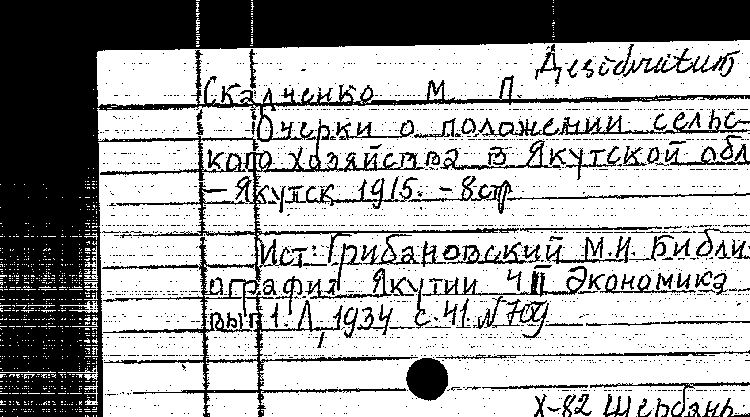 Desideratum
Скалченко М. П.
Очерки о положении сельс-
кого хозяйства в Якутской обл
– Якутск 1915. – 8стр
Ист: Грибановский М.И. Библи-
ография Якутии Ч II Экономика
вып 1. Л, 1934 с.41. №709
X-82 Щербань